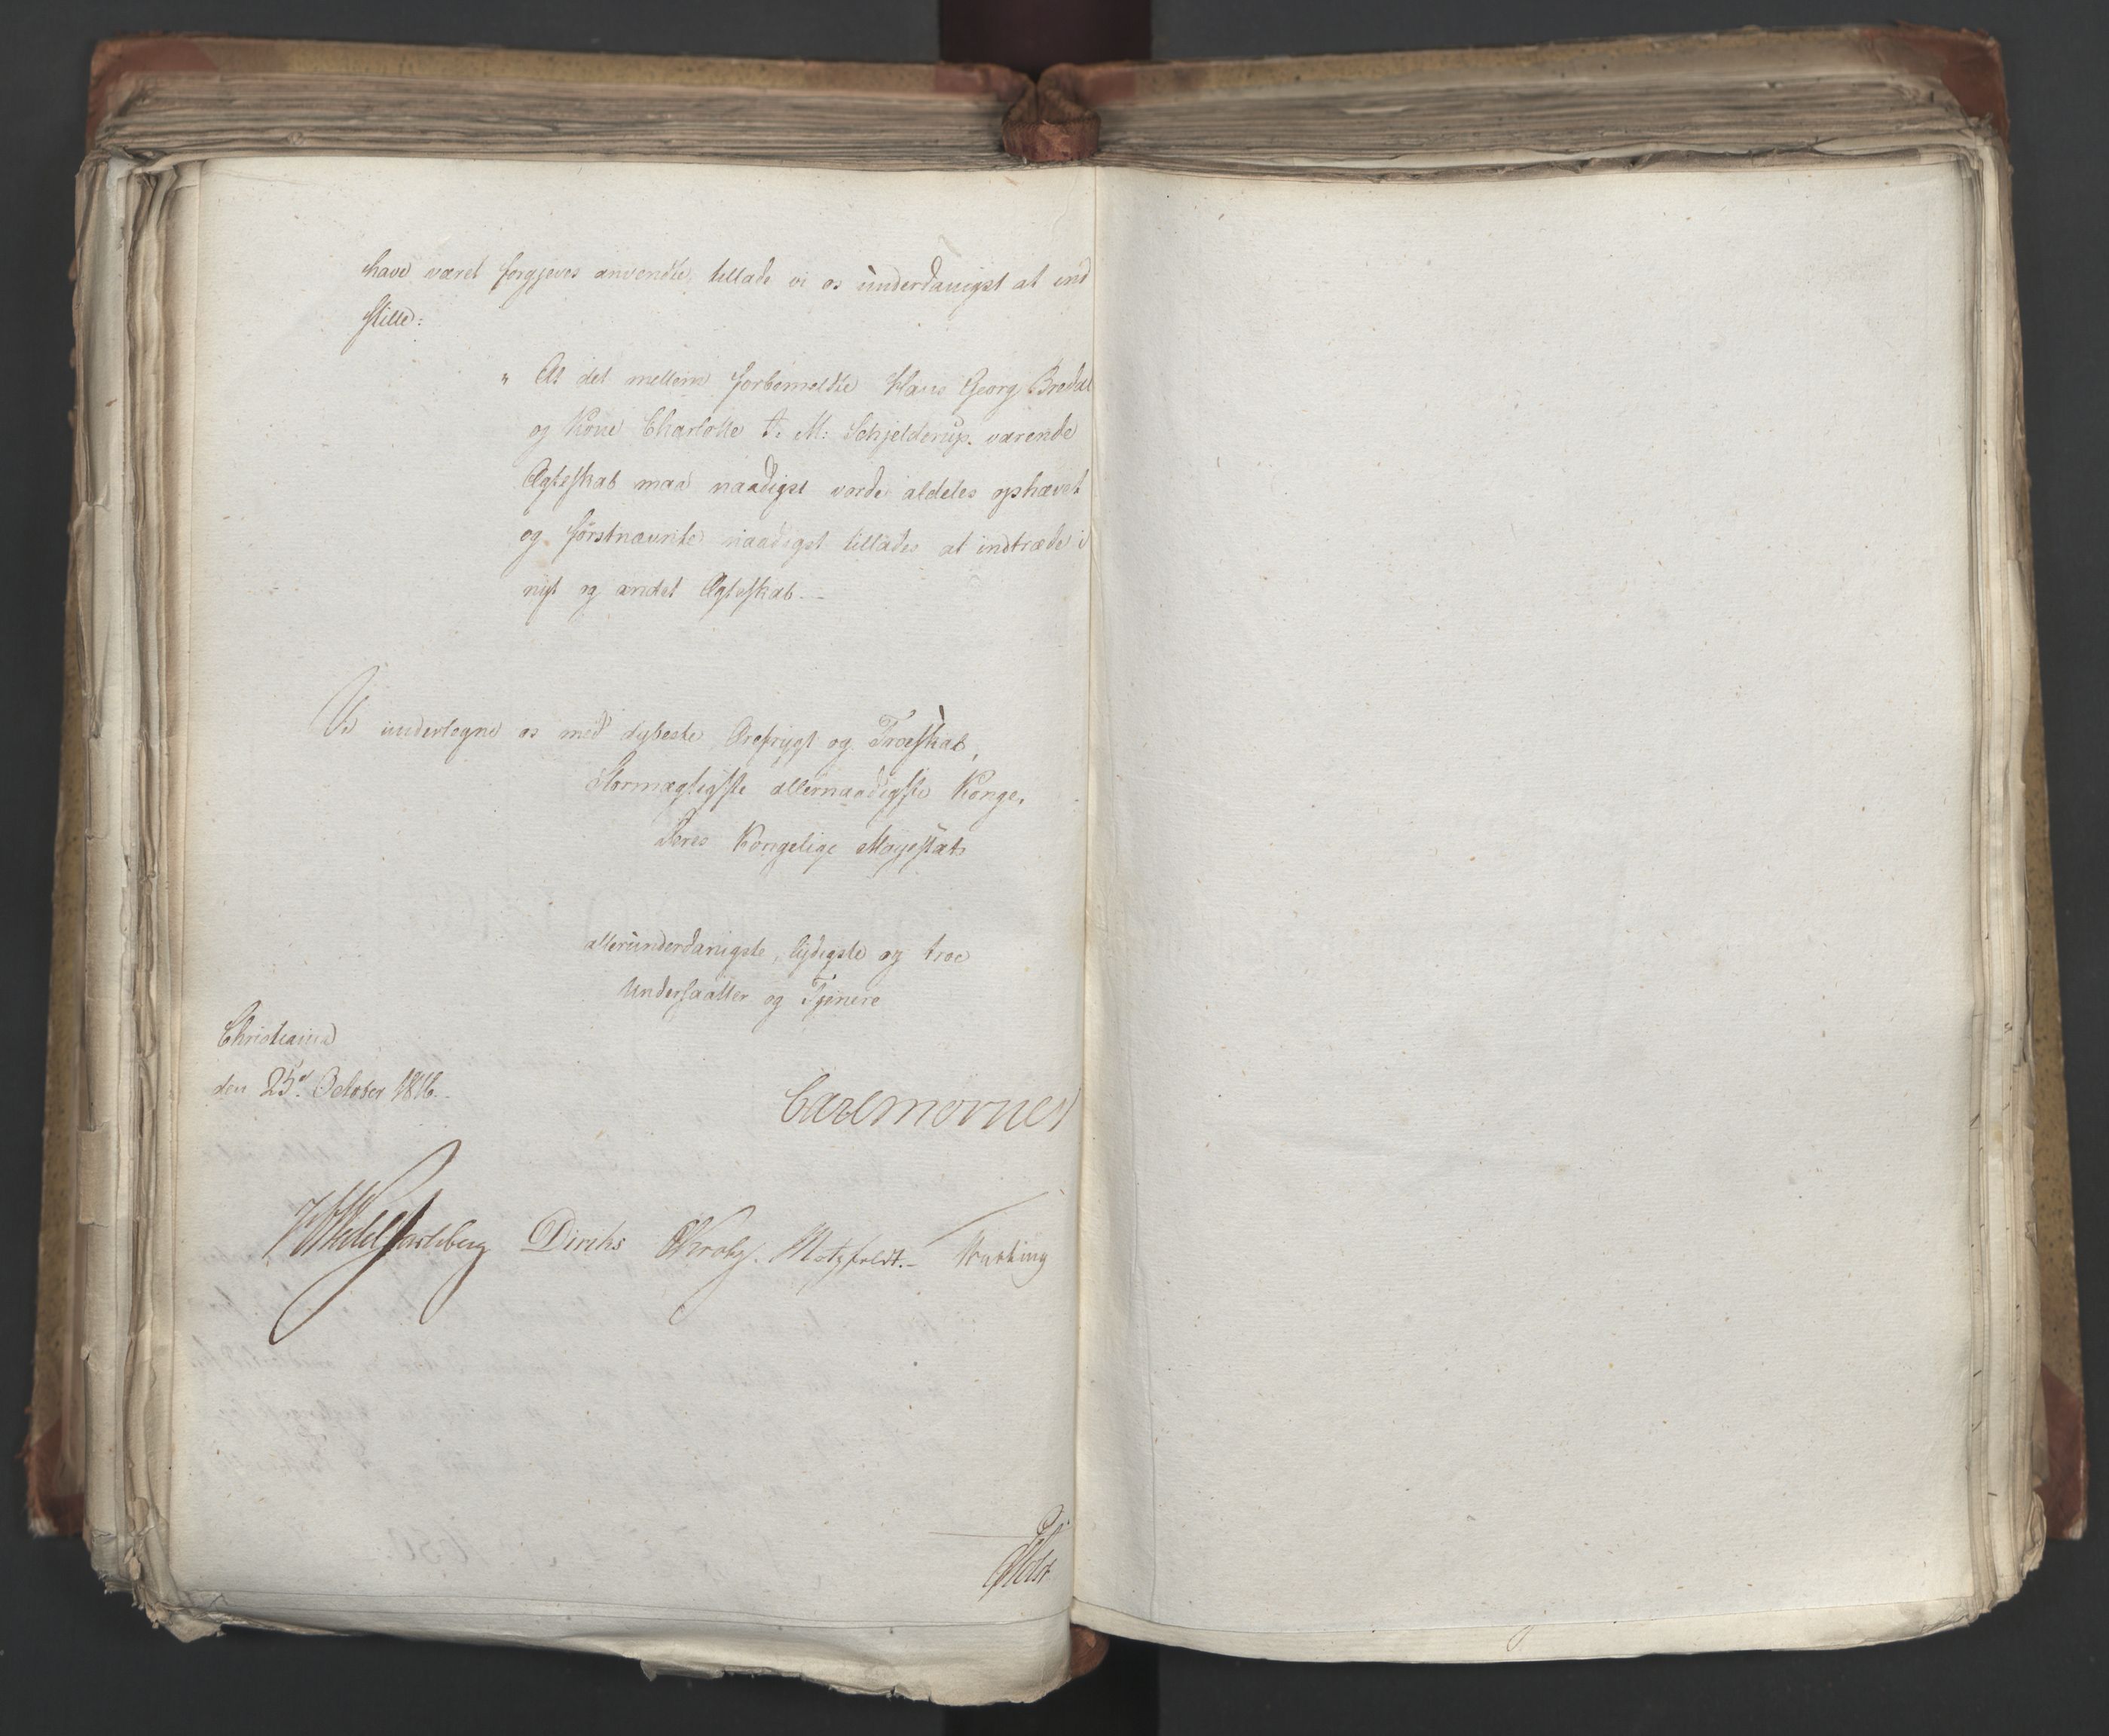 have været forgjeves anvendte, tillade vi os underdanigst at ind
stille:
" At det mellem forbemeldte Hans Georg Bredal
og Kone Charlotte A: M: Schjelderup værende
Ægteskab maa naadigst vorde aldeles ophævet
og førstnævnte naadigst tillades at indtræde i
nyt og andet Ægteskab. –
Vi undertegne os med dybeste Ærefrygt og Troeskab,
Stormægtigste allernaadigste Konge,
Deres Kongelige Majestæts
allerunderdanigste, lydigste og troe
Undersaatter og Tjenere
Christiania
den 25d October 1816.
Carl Mörner
Wedel Jarlsberg Diriks Krohg. Motzfeldt. –
Holst